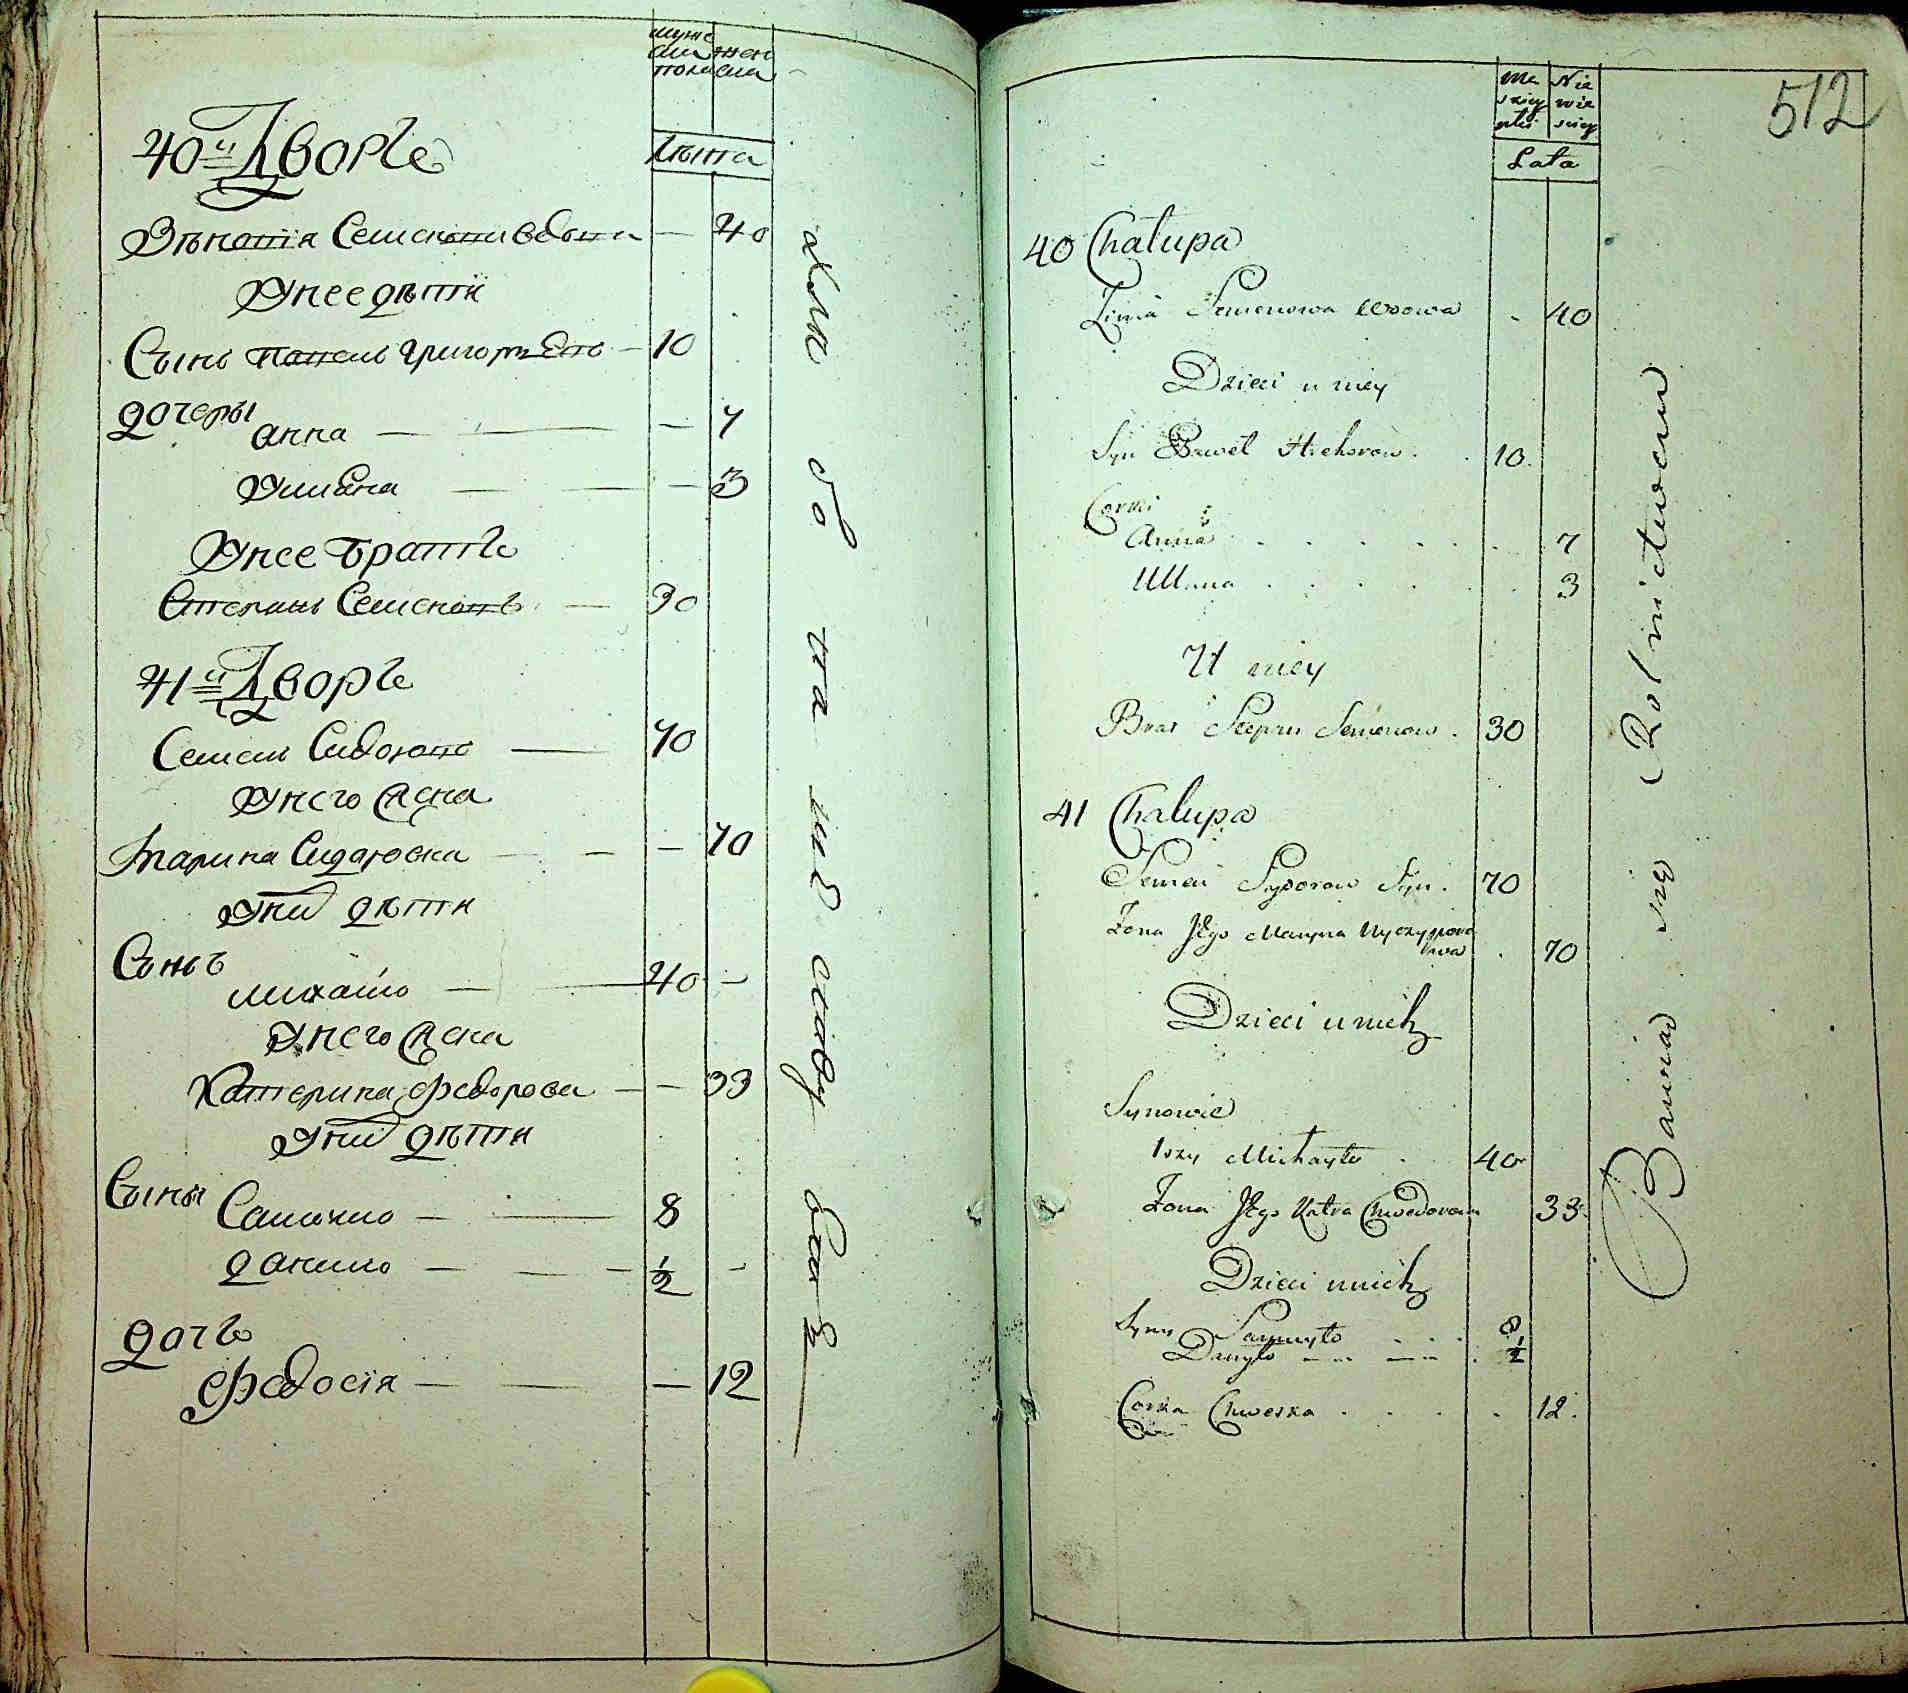 муже
ска жен
пола ска
Лѣта
40й Дворъ
Зѣновія Семенова вдова — 40
У нее дѣти
Сынъ Павелъ Григорьевъ — 10
Дочеры
Анна — — — 7
Ульяна — — — 3
У нее братъ
Степанъ Семеновъ — 30
41й Дворъ
Семенъ Сидоровъ — 70
У него жена
Марина Сидорова — — — 70
У них дѣти
Сынъ
Михайло — — 40 —
У него жена
Катерина Федорова — — 33
У них дѣти
Сыны Самойло — — 8
Данило — — — ½ —
Дочь
Федосія — — — 12
512
Mę Nie
skiey wie
płci sciey
Lata
40 Chałupa
Zinia Semenowa Wdowa . 40
Dzieci u niey
Syn Paweł Hrehorow . . 10
Corki
Anna . . . . . . 7
Ulana . . . . . 3
U niey
Brat Stepan Semenow . 30
41 Chałupa
Semen Sydorow Syn . 70
Żona Jego Maryna
. 70
Dzieci u nich
Synowie
1szy Michayło . 40
Żona Jego Katra Chwedorowa 33
Dzieci u nich
Syny Samuyło . . . 8
Danyło . . . . ½
Corka Chweska . . . . . 12.
Bawiaią się Rolnictwem